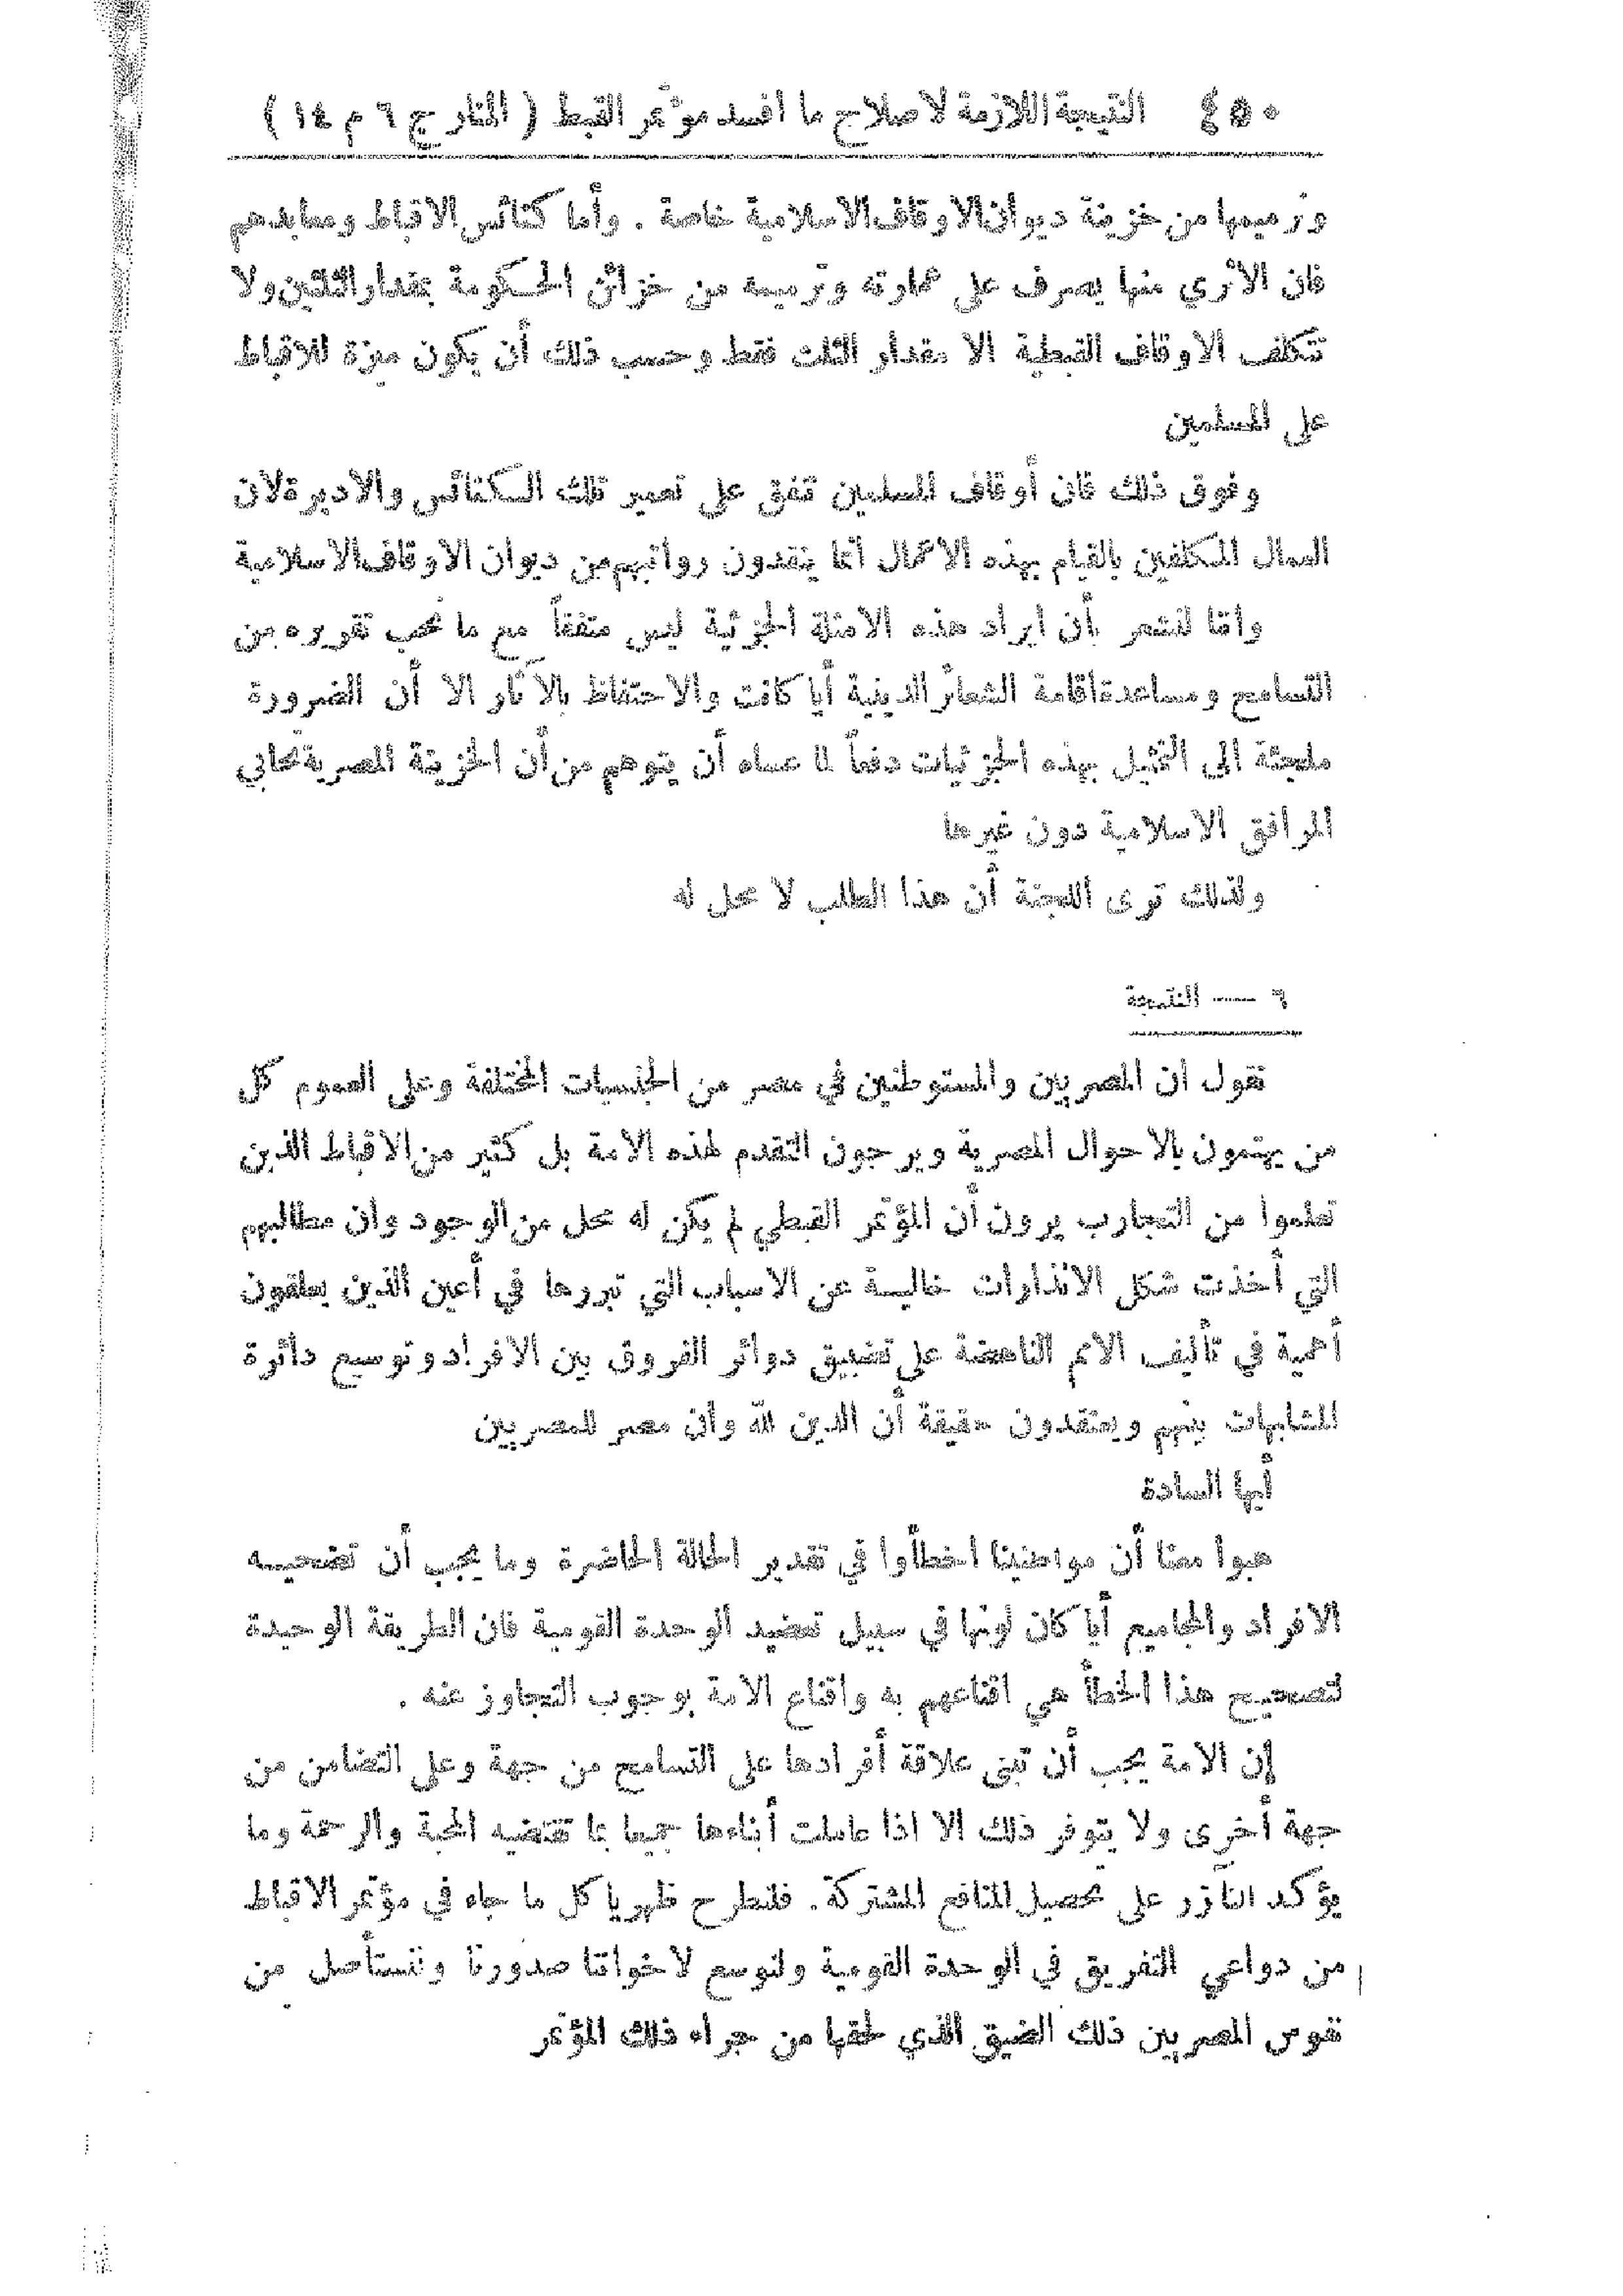 ٤٥٠ النتيجة اللازمة لاصلاح ما افسد مؤتمر القبط ( المنار ج ٦ م ١٤ )
وترميمها من خزينة ديوان الاوقاف الاسلامية خاصة . وأما كنائس الاقباط ومعابدهم
فان الاثري منها يصرف على عمارته وترميمه من خزائن الحكومة بمقدار الثلثين ولا
تتكلف الاوقاف القبطية الا مقدار الثلث فقط وحسب ذلك أن يكون ميزة للاقباط
على المسلمين
وفوق ذلك فان أوقاف المسلمين تنفق على تعمير تلك الكنائس والاديرة لان
العمال المكلفين بالقيام بهذه الاعمال انما ينقدون رواتبهم من ديوان الاوقاف الاسلامية
وانا لنشعر بأن ايراد هذه الامثلة الجزئية ليس متفقاً مع ما نحب تقريره من
التسامح ومساعدة اقامة الشعائر الدينية أيا كانت والاحتفاظ بالآثار الا أن الضرورة
ملجئة الى التمثيل بهذه الجزئيات دفعاً لما عساه أن يتوهم من أن الخزينة المصرية تحابي
المرافق الاسلامية دون غيرها
ولذلك ترى اللجنة أن هذا الطلب لا محل له
٦ — النتيجة
نقول ان المصريين والمستوطنين في مصر من الجنسيات المختلفة وعلى العموم كل
من يهتمون بالاحوال المصرية ويرجون التقدم لهذه الامة بل كثير من الاقباط الذين
تعلموا من التجارب يرون أن المؤتمر القبطي لم يكن له محل من الوجود وان مطالبهم
التي أخذت شكل الانذارات خالية عن الاسباب التي تبررها في أعين الذين يعلقون
أهمية في تأليف الامم الناهضة على تضييق دوائر الفروق بين الافراد وتوسيع دائرة
المشابهات بينهم ويعتقدون حقيقة أن الدين لله وأن مصر للمصريين
أيها السادة
هبوا معنا أن مواطنينا اخطأوا في تقدير الحالة الحاضرة وما يجب أن تضحيه
الافراد والمجاميع أيا كان لونها في سبيل تعضيد الوحدة القومية فان الطريقة الوحيدة
لتصحيح هذا الخطأ هي اقناعهم به واقناع الامة بوجوب التجاوز عنه .
إن الامة يجب أن تبنى علاقة أفرادها على التسامح من جهة وعلى التضامن من
جهة أخرى ولا يتوفر ذلك الا اذا عاملت أبناءها جميعا بما تقتضيه المحبة والرحمة وما
يؤكد التآزر على تحصيل المنافع المشتركة . فلنطرح ظهريا كل ما جاء في مؤتمر الاقباط
من دواعي التفريق في الوحدة القومية ولنوسع لاخواننا صدورنا ولنستأصل من
نفوس المصريين ذلك الضيق الذي لحقها من جراء ذلك المؤتمر